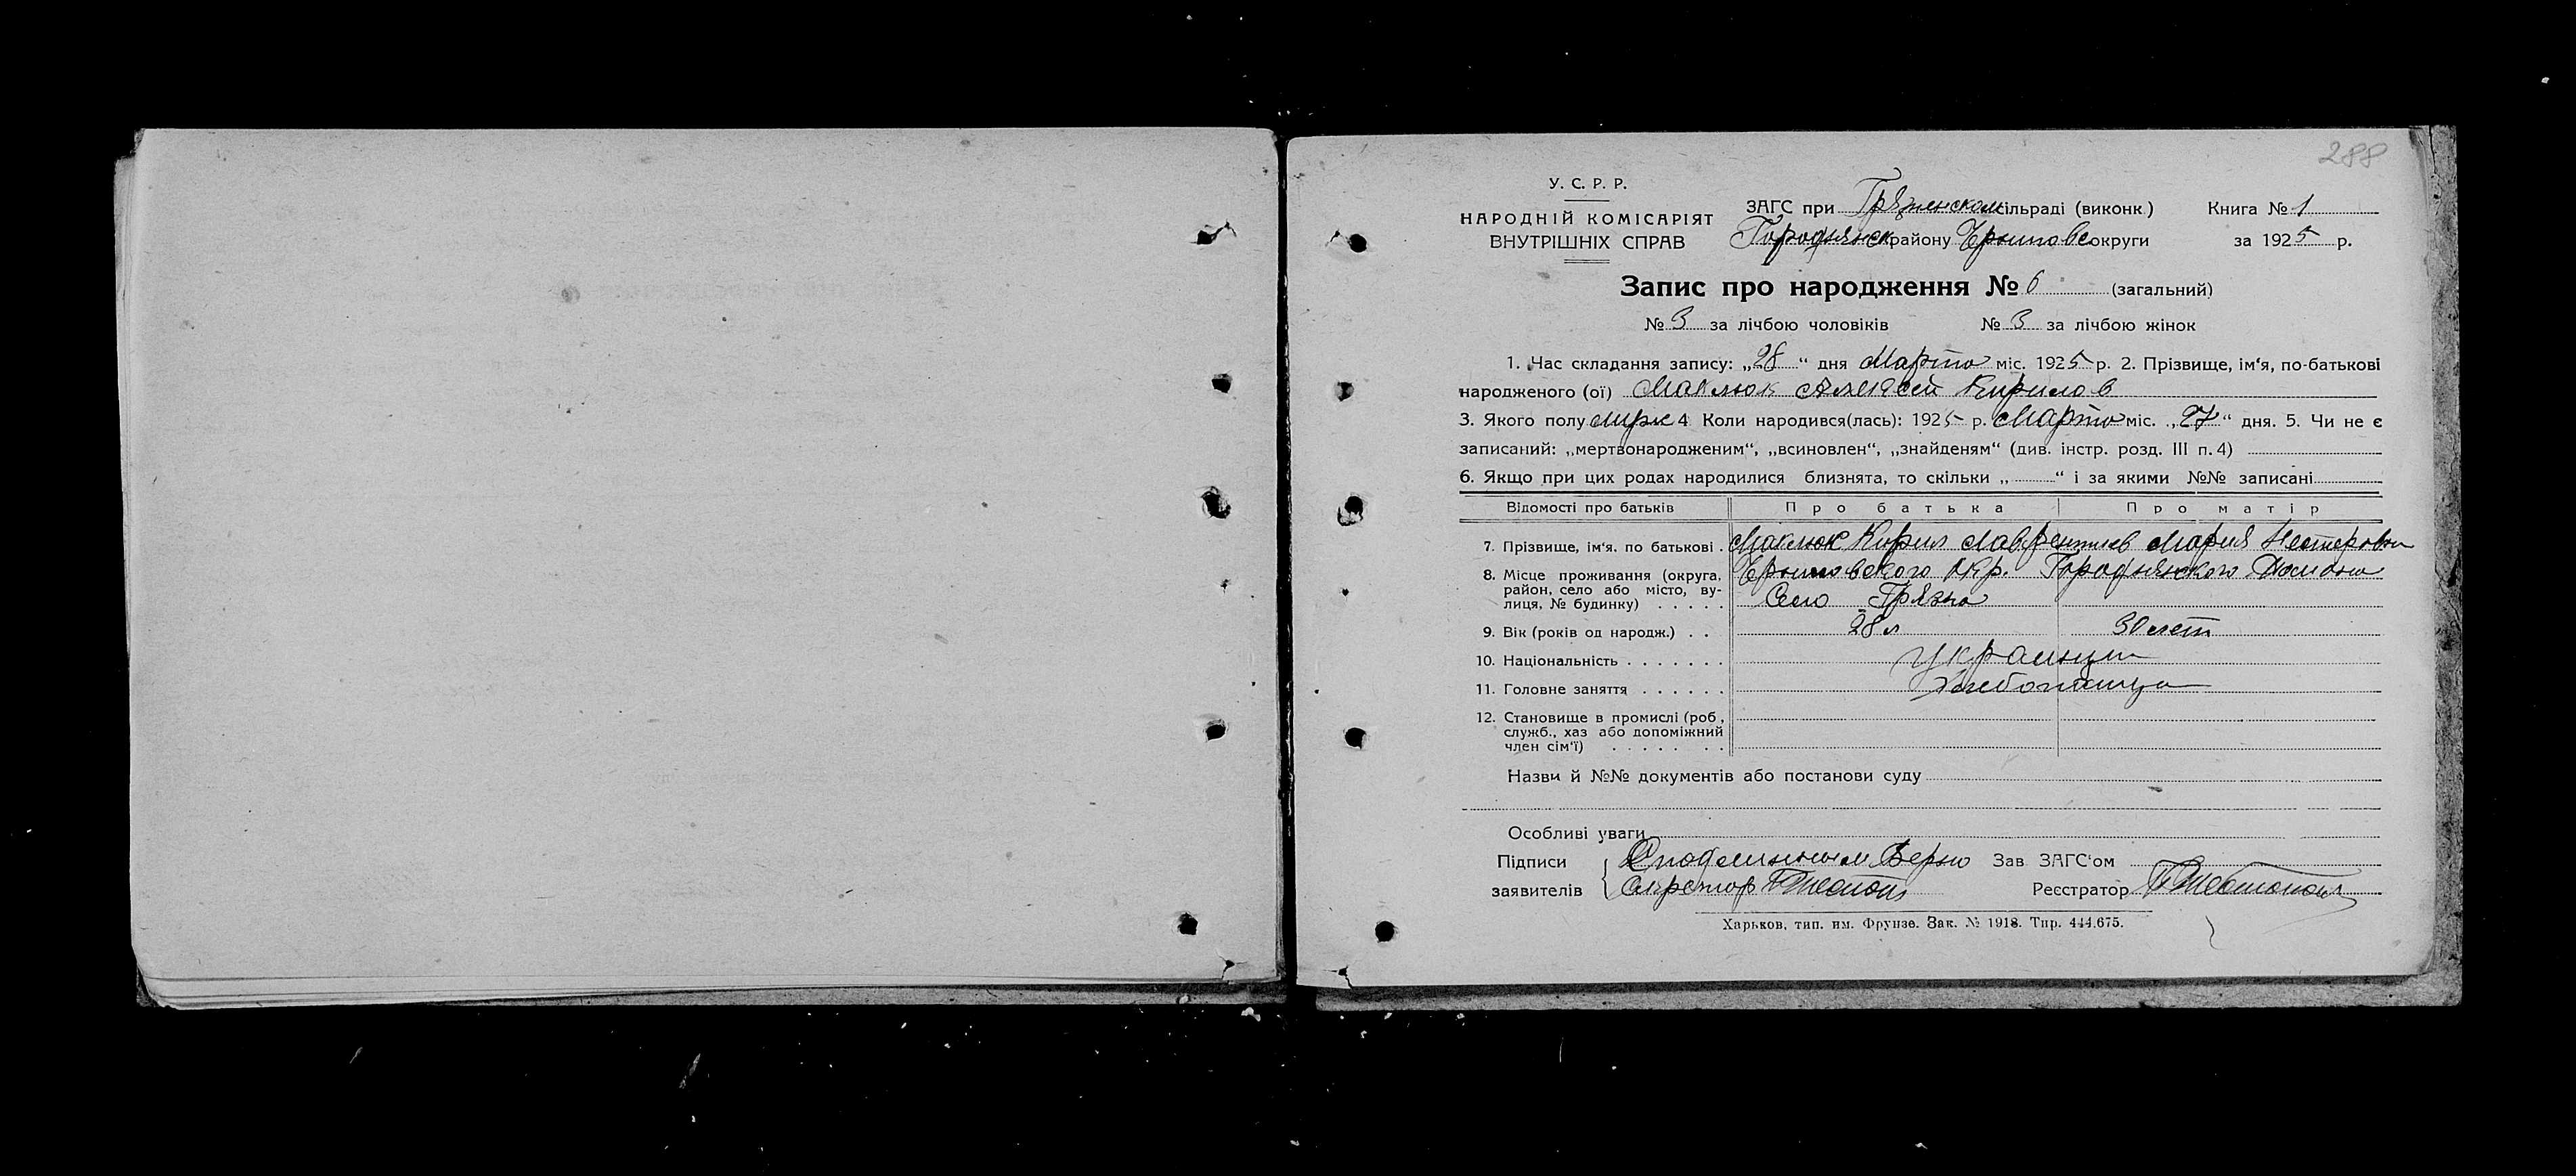 288
У. С. Р. Р.
НАРОДНІЙ КОМІСАРІЯТ
ВНУТРІШНІХ СПРАВ
ЗАГС при Грязненском сільраді (виконк) Книга № 1
Городнянск району Чернигов округи за 1925 р.
Запис про народження № 6 (загальний)
№ 3 за лічбою чоловіків № 3 за лічбою жінок
1. Час складання запису: „28“ дня Марта міс. 1925 р. 2. Прізвище, ім‘я, по-батькові
народженого (ої) Маклюк Алексей Кирилов
3. Якого полу мужск 4 Коли народився(лась): 1925 р. Марта міс. „27“ дня. 5. Чи не є
записаний: „мертвонародженим“, „всиновлен“, „знайденям“ (див. інстр. розд. III п. 4)
6. Якщо при цих родах народилися близнята, то скільки „ “ і за якими №№ записані
Відомості про батьків Про батька Про матір
7. Прізвище, ім‘я. по батькові . Маклюк Кирил Лаврентиев Мария Нестеровна
8. Місце проживання (округа, район, село або місто, вулиця, № будинку) . . . . . Черниговского Окр. Городнянского Района
Село Грязна
9. Вік (років од народж.) . . 28 л 30 лет
10. Національність . . . . . . . Украинцы
11. Головне заняття . . . . . . Хлебопашцы
12. Становище в промислі (роб,
служб., хаз або допоміжний
член сім‘ї) . . . . . . .
Назви й №№ документів або постанови суду
Особливі уваги
Підписи С подлинным Верно Зав ЗАГС‘ом
заявителів Секретар Реєстратор
Харьков, тип. им. Фрунзе. Зак. № 1918. Тир. 444.675.